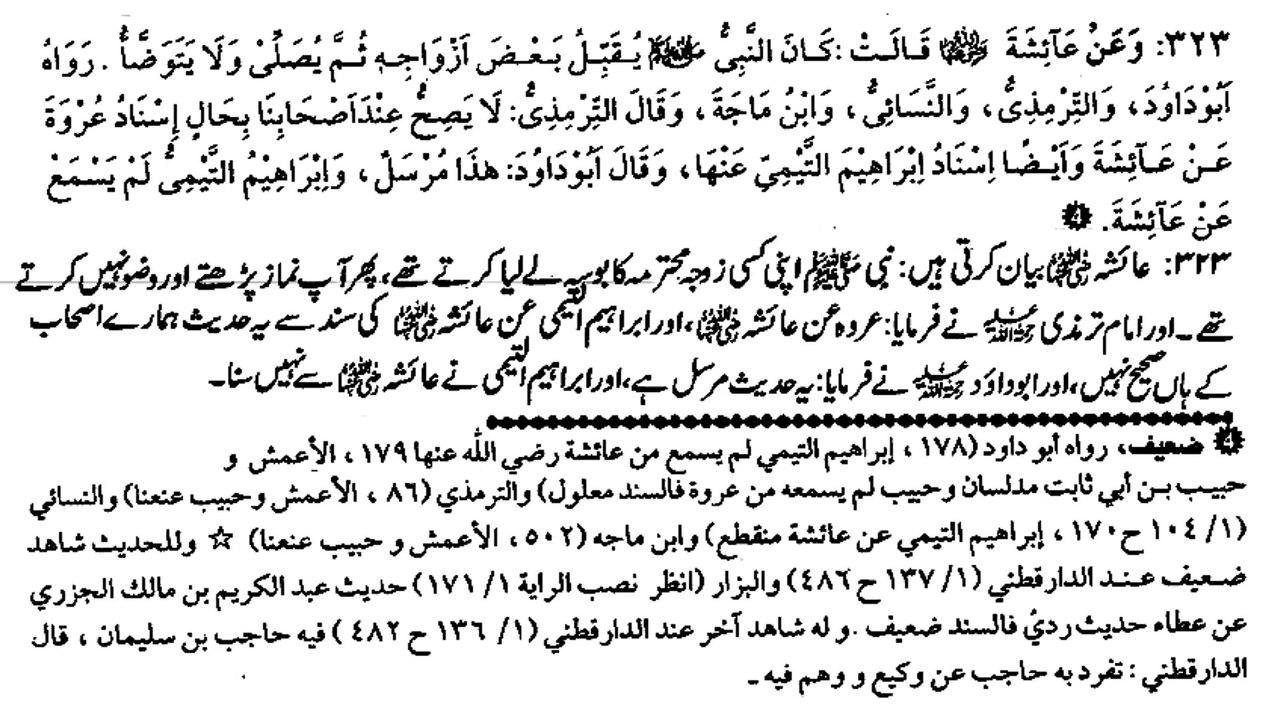 ۳۲۳: وَعَنْ عَآئِشَةَ رضی اللہ عنہا قَالَتْ: کَانَ النَّبِیُّ ﷺ یُقَبِّلُ بَعْضَ اَزْوَاجِہٖ ثُمَّ یُصَلِّیْ وَلَا یَتَوَضَّأُ. رَوَاهُ
اَبُوْدَاوُدَ، وَالتِّرْمِذِیُّ، وَالنَّسَائِیُّ، وَابْنُ مَاجَةَ، وَقَالَ التِّرْمِذِیُّ: لَا یَصِحُّ عِنْدَ اَصْحَابِنَا بِحَالٍ إِسْنَادُ عُرْوَةَ
عَنْ عَآئِشَةَ وَاَیْضًا اِسْنَادُ اِبْرَاهِیْمَ التَّیْمِیِّ عَنْهَا، وَقَالَ اَبُوْدَاوُدَ: هٰذَا مُرْسَلٌ، وَاِبْرَاهِیْمُ التَّیْمِیُّ لَمْ یَسْمَعْ
عَنْ عَآئِشَةَ. ❹
۳۲۳: عائشہ رضی اللہ عنہا بیان کرتی ہیں: نبی ﷺ اپنی کسی زوجہ محترمہ کا بوسہ لے لیا کرتے تھے، پھر آپ نماز پڑھتے اور وضو نہیں کرتے
تھے۔ اور امام ترمذی رحمہ اللہ نے فرمایا: عروہ عن عائشہ رضی اللہ عنہا، اور ابراہیم التیمی عن عائشہ رضی اللہ عنہا کی سند سے یہ حدیث ہمارے اصحاب
کے ہاں صحیح نہیں، اور ابوداؤد رحمہ اللہ نے فرمایا: یہ حدیث مرسل ہے، اور ابراہیم التیمی نے عائشہ رضی اللہ عنہا سے نہیں سنا۔
❹ ضعيف، رواه أبو داود (۱۷۸ ، إبراهيم التيمي لم يسمع من عائشة رضي الله عنها ۱۷۹ ، الأعمش و
حبيب بن أبي ثابت مدلسان وحبيب لم يسمعه من عروة فالسند معلول) والترمذي (۸٦ ، الأعمش وحبيب عنعنا) والنسائي
(۱/ ۱۰٤ ح ۱۷۰ ، إبراهيم التيمي عن عائشة منقطع) وابن ماجه (٥۰۲ ، الأعمش و حبيب عنعنا) ☆ وللحديث شاهد
ضعيف عند الدارقطني (۱/ ۱۳۷ ح ٤۸٦) والبزار (انظر نصب الراية ۱/ ۱۷۱) حديث عبد الكريم بن مالك الجزري
عن عطاء حديث ردئ فالسند ضعيف .و له شاهد آخر عند الدارقطني (۱/ ۱۳٦ ح ٤۸۲ ) فيه حاجب بن سليمان ، قال
الدارقطني : تفرد به حاجب عن وكيع و وهم فيه ۔